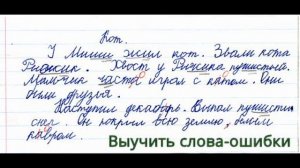 Кот.
У Миши жил кот. Звали кота
Рыжик. Хвост у Рыжика пушистый.
Мальчик часто играл с котом. Они
были друзья.
Наступил декабрь. Выпал пушистый
снег. Он покрыл всю землю белым
ковром.
Выучить слова-ошибки